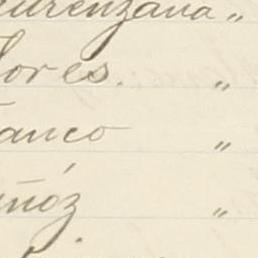 urenzana "
lores. "
anco "
uñóz "